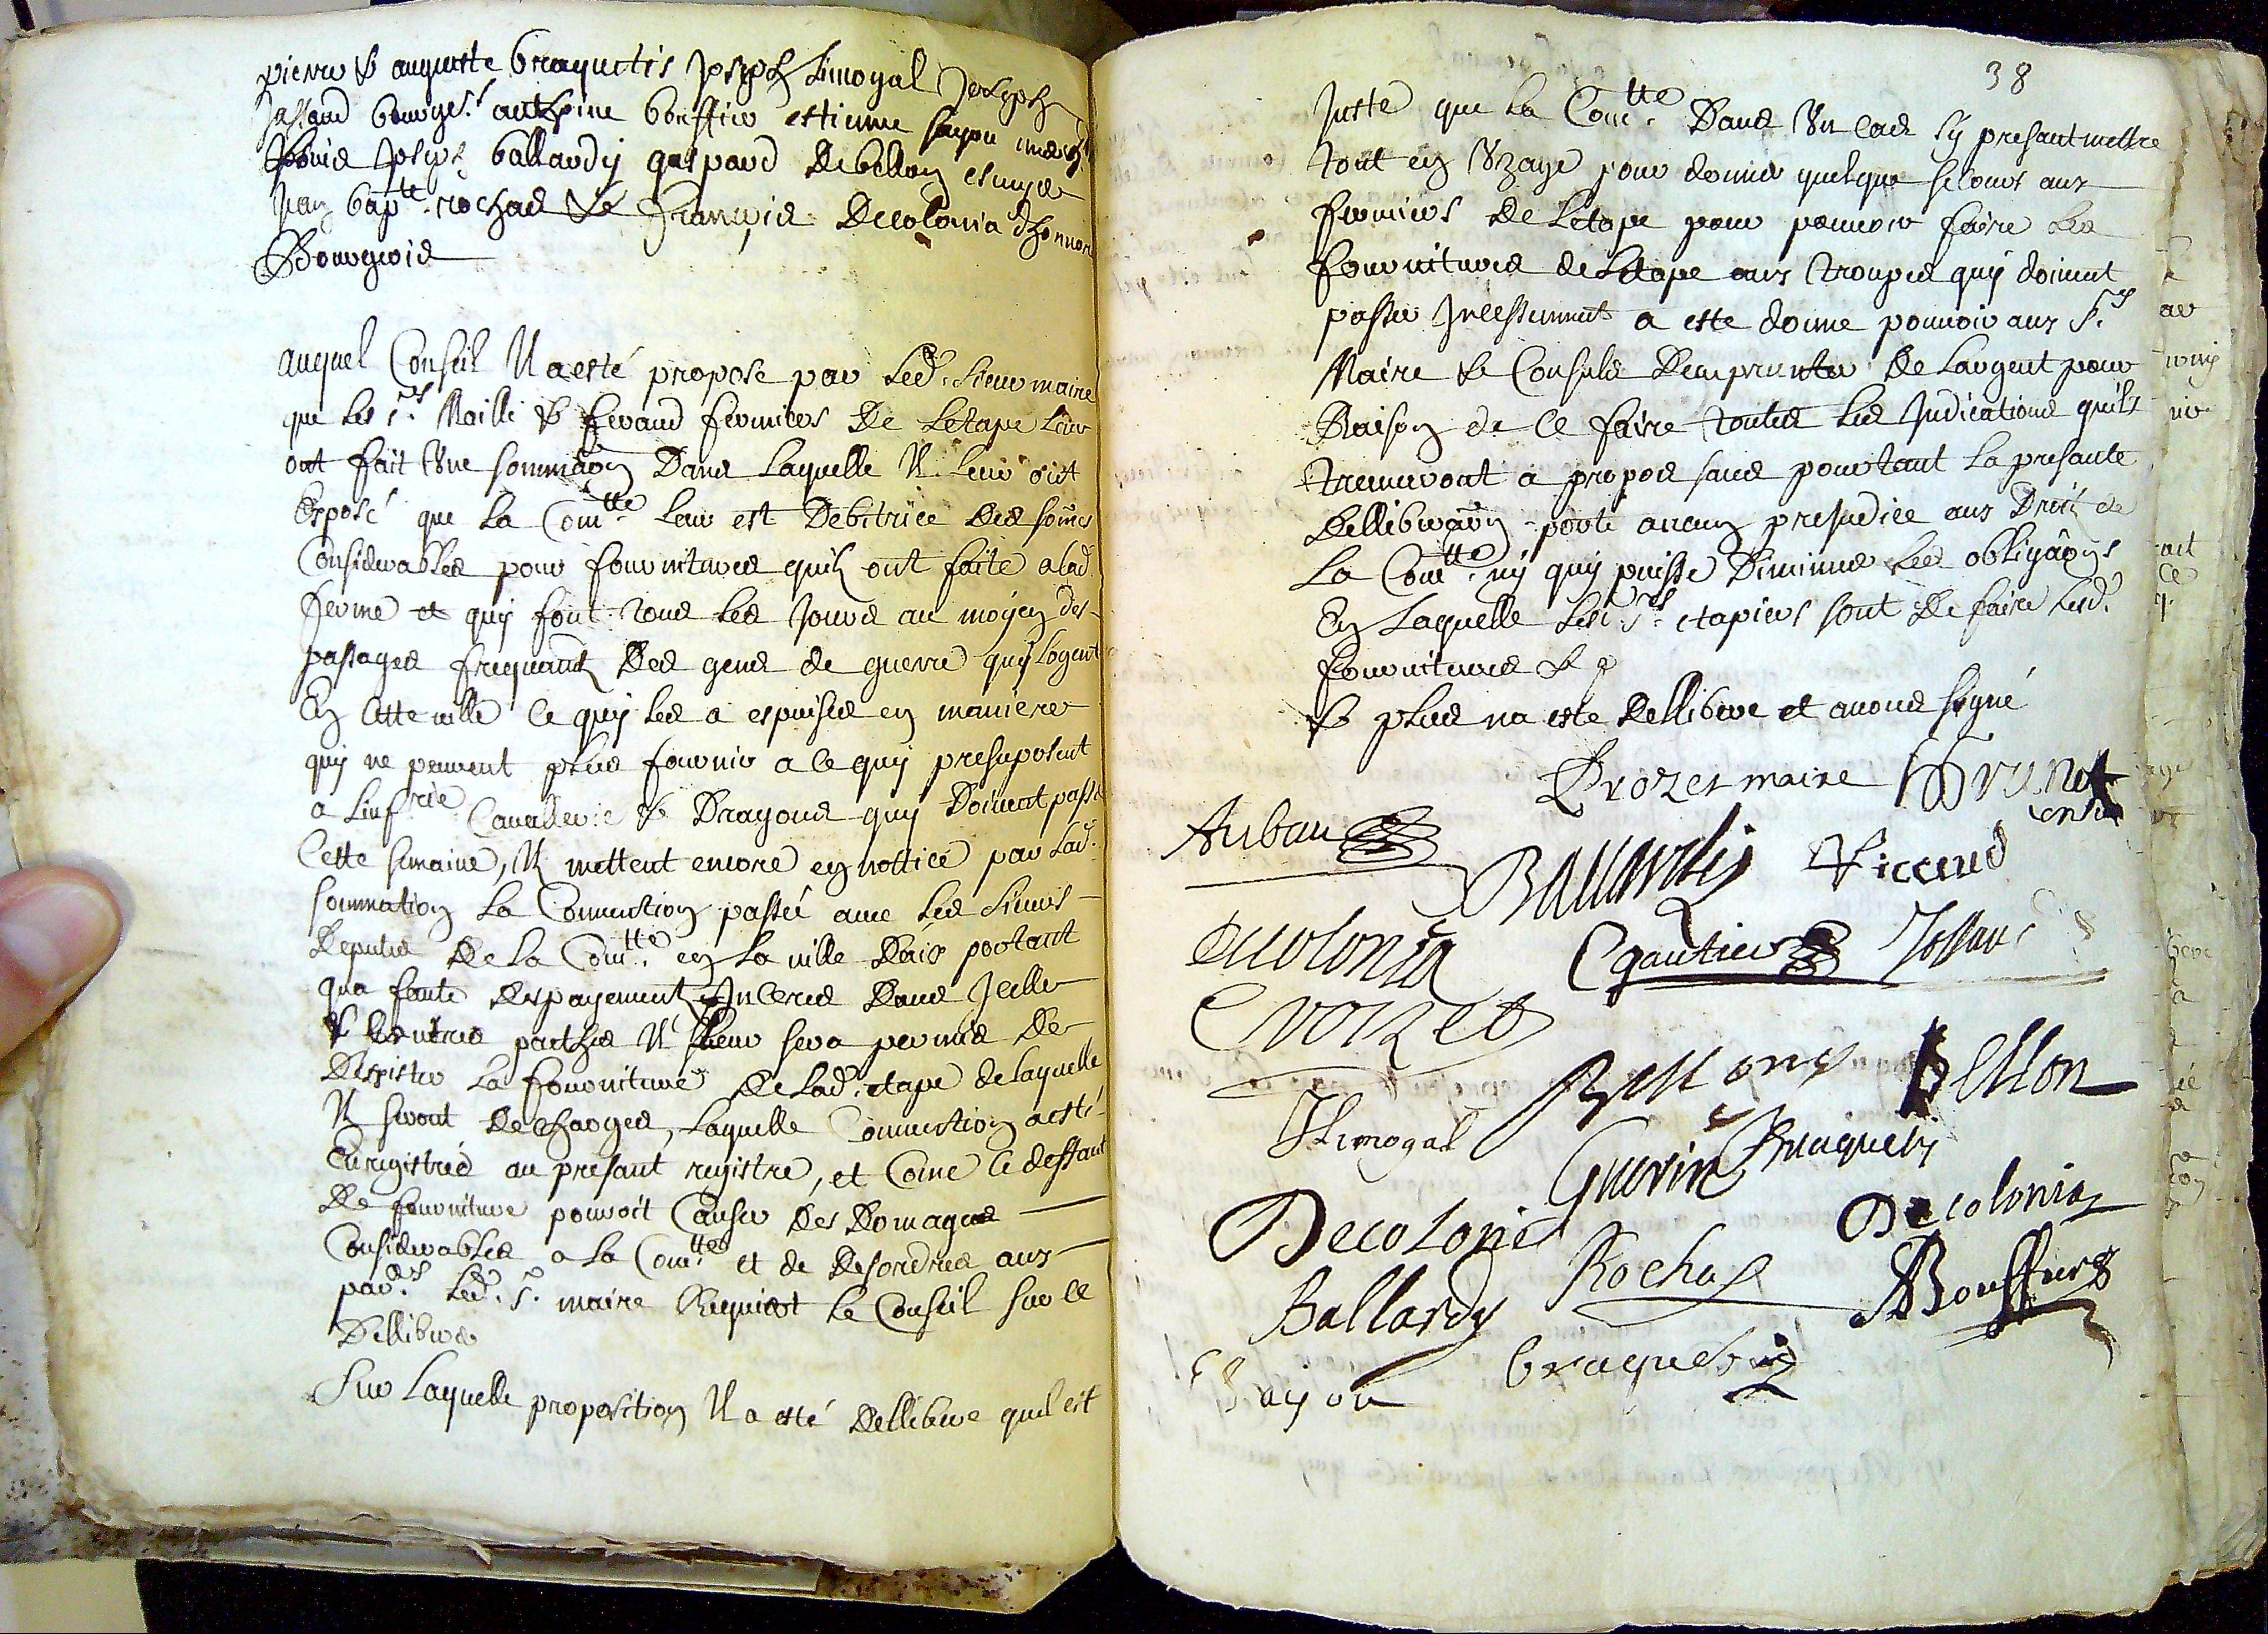 pierre & auguste braquetis Joseph Limogal Joseph
Jassaud bourges. anthoine bouffier estienne fayon
Joseph ballardy gaspard Debellon escuyer
Jean bapte. rochas & François Decolonia dhonnore
Bourgeois
auquel Conseil Il a esté propose par led. sieur maire
que les srs. Maille & feraud fermiers De Letape Leur
ont fait Une sommaõn Dans Laquelle Il Leur ont
Exposé que La Comtte. Leur est Debitrice Des somes
Considerables pour fournitures quils ont faite a lad.
ferme et quy font tous les Jours au moyen des
passages frequants Des gens de guerre quy Logent
En Cette ville Ce quy les a espuises en maniere
quy ne peuvent plus fournir a Ce quy presuposent
a Linfrie Cavallerie & Dragons quy Doivent passer
Cette semaine, Il mettent encore en nottice par Lad.
sommation La Convention passée avec les sieurs
Deputes De La Comtte. en La ville Daix portant
qua faute Des payements Inceres Dans Jcelle
& les autres parthes Il Leur sera permis De
Desister La fourniture De Lad. etape de Laquelle
Il seront Decharges, Laquelle Convention a esté
Enregistrée au presant registre, et Come Ce deffaut
De fourniture pouroit Causer Des Domages
Considerables a La Comtte. et de Desordres aux
pars. Led. sr. maire Requiert Le Conseil sur ce
Dellibere
Sur Laquelle proposition Il a esté Dellibere quil est
38
Juste que La Comtte. Dans Un Cas sy presant mettre
tout en Uzage pour donner quelque secours aux
fermiers De Letape pour pouvoir faire les
fournitures de Letape aux troupes quy doivent
passer Incessemment a este donne pouvoir aux Srs.
Maire & Consuls Demprunter De Largent pour
Raison de Ce faire toutes les Indications quils
treuveront a propos sans pourtant La presante
Delliberaõn porte aucun presudice aux Droits de
La Comtte. ny quy puisse Diminuer Les obligaõns
En Laquelle Les. Srs. etapiers sont De faire Lesd.
fournitures & p
& plus na este Dellibere et avons signé
Brozes maire Brunet
consul
Auban
Ballardis Viccard
Decolonia Cgautier Jassaud
Croizet
Bellony Bellon
JLimogal
Guerin Braquety
Decolonia Decolonia
Ballardy Rochas ABouffier
fayon braquetiz